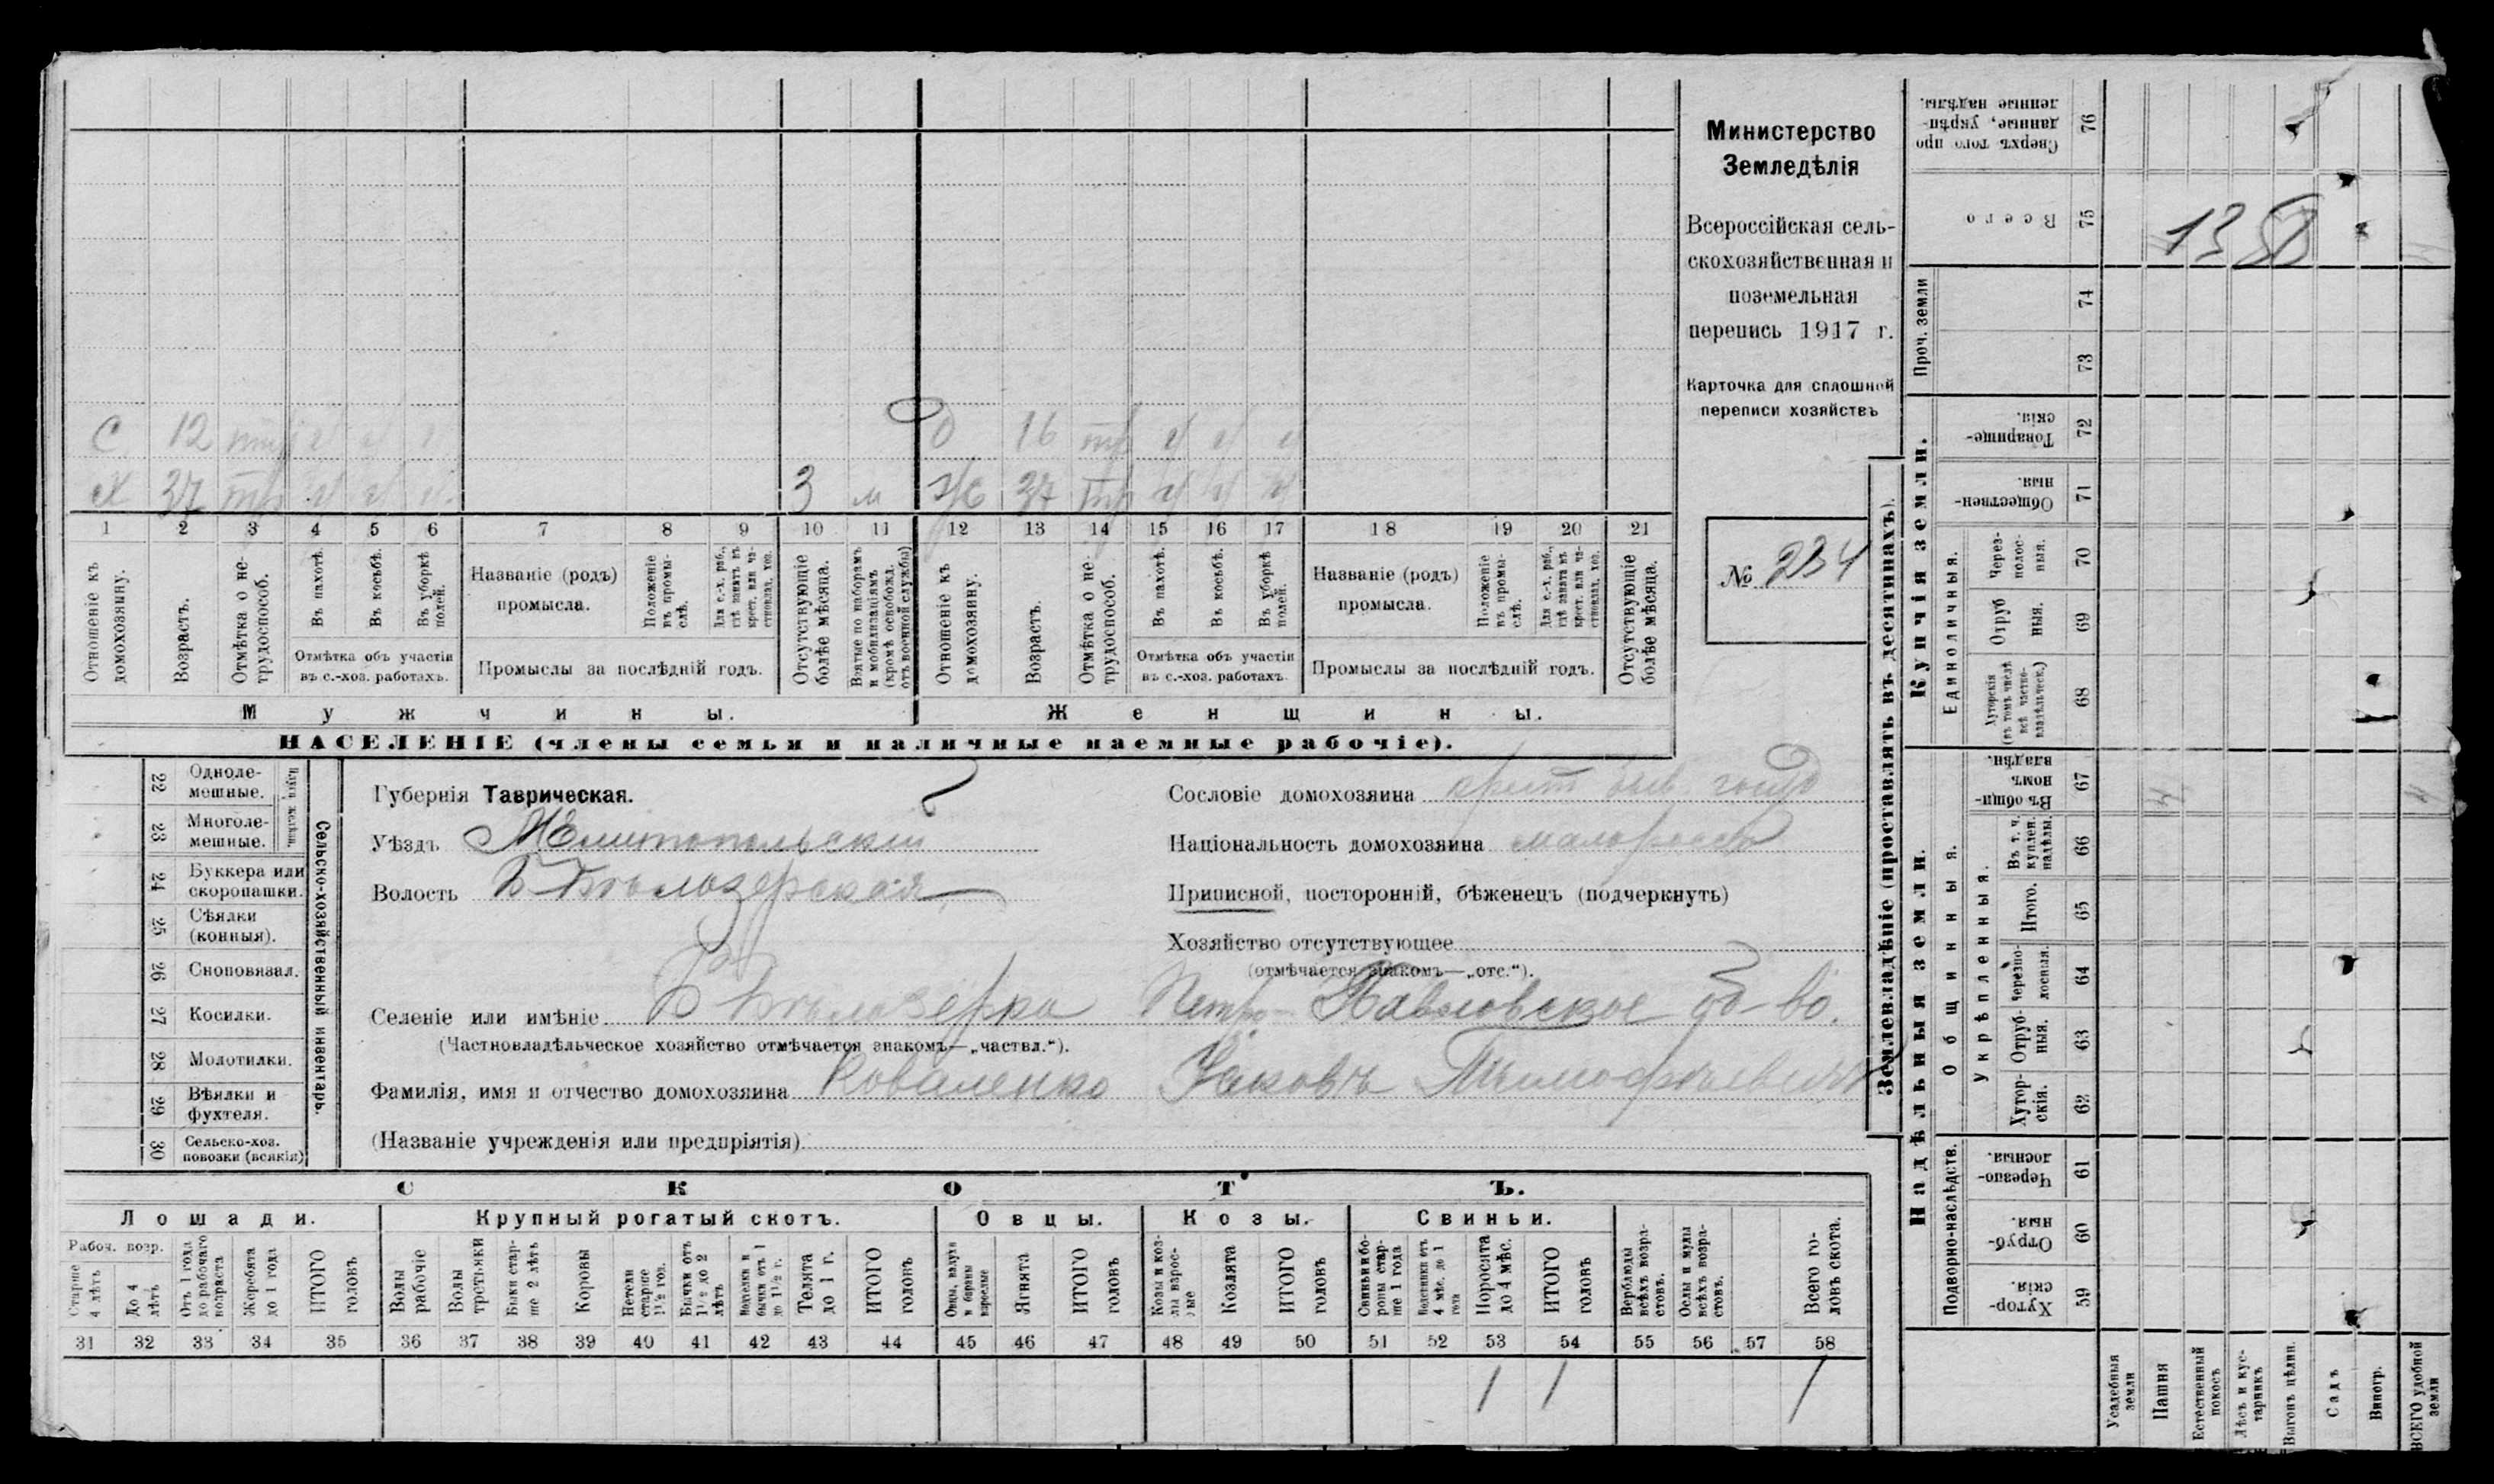 С 12 тр
Х 37 тр 3 м
О 16 тр
Ж 37 тр
1 2 3 4 5 6 7 8 9 10 11 12 13 14 15 16 17 18 19 20 21
Отношеніе къ домохозяину.
Возрастъ.
Отмѣтка о не-
трудоспособ.
Въ пахотѣ.
Въ косьбѣ.
Въ уборкѣ
полей.
Отмѣтка объ участіи
въ с.-хоз. работахъ.
Названіе (родъ)
промысла.
Положеніе
въ промы-
слѣ.
Для с.-х. раб.,
гдѣ занятъ въ
крест. или ча-
стновлад. хоз.
Промыслы за послѣдній годъ.
Отсутствующіе
болѣе мѣсяца.
Взятые по наборамъ
и мобилизаціямъ
(кромѣ освобожд.
отъ военной службы)
Отношеніе къ
домохозяину.
Возрастъ.
Отмѣтка о не-
трудоспособ.
Въ пахотѣ.
Въ косьбѣ.
Въ уборкѣ
полей.
Отмѣтка объ участіи
въ с.-хоз. работахъ.
Названіе (родъ)
промысла.
Положеніе
въ промы-
слѣ.
Для с.-х. раб.,
гдѣ занята въ
крест. или ча-
стновлад. хоз.
Промыслы за послѣдній годъ.
Отсутствующіе
болѣе мѣсяца.
Мужчины.
Женщины.
НАСЕЛЕНІЕ (члены семьи и наличные наемные рабочіе).
Министерство
Земледѣлія
Всероссійская сель-
скохозяйственная и
поземельная
перепись 1917 г.
Карточка для сплошной
переписи хозяйствъ
№ 234
22 Одноле-
мешные.
23 Многоле-
мешные.
24 Буккера или
скоропашки.
25 Сѣялки
(конныя).
26 Сноповязал.
27 Косилки.
28 Молотилки.
29 Вѣялки и
фухтеля.
30 Сельско-хоз.
повозки (всякія)
Сельско-хозяйственный инвентарь.
Губернія Таврическая.
Уѣздъ Мелитопольскій
Волость Б Бѣлозерская
Селеніе или имѣніе Б Бѣлозерка Петро-Павловское об-во.
(Частновладѣльческое хозяйство отмѣчается знакомъ—„частвл.“).
Фамилія, имя и отчество домохозяина Коваленко Яковъ Тимофѣевичъ
(Названіе учрежденія или предпріятія)
Сословіе домохозяина крест быв госуд
Національность домохозяина малороссъ
Приписной, посторонній, бѣженецъ (подчеркнуть)
Хозяйство отсутствующее
(отмѣчается знакомъ—„отс.“).
СКОТЪ.
Лошади. Крупный рогатый скотъ. Овцы. Козы. Свиньи.
Рабоч. возр.
Старше
4 лѣтъ
До 4
лѣтъ
Отъ 1 года
до рабочаго
возраста
Жеребята
до 1 года
ИТОГО
головъ
Волы
рабочіе
Волы
третьяки
Быки стар-
ше 2 лѣтъ
Коровы
Нетели
старше
1½ год.
Бычки отъ
1½ до 2
лѣтъ
бычки отъ 1
до 1½ г.
Телята
до 1 г.
ИТОГО
головъ
Овцы, валухи
и бараны
взрослые
Ягнята
ИТОГО
головъ
Козы и коз-
лы взрос-
лые
Козлята
ИТОГО
головъ
Свиньи и бо-
ровы стар-
ше 1 года
Подсвинки отъ
4 мѣс. до 1
года
Поросята
до 4 мѣс.
ИТОГО
головъ
Верблюды
всѣхъ возра-
стовъ.
Ослы и мулы
всѣхъ возра-
стовъ.
Всего го-
ловъ скота.
31 32 33 34 35 36 37 38 39 40 41 42 43 44 45 46 47 48 49 50 51 52 53 54 55 56 57 58
1 1 1
Землевладѣніе (проставлять въ десятинахъ).
Купчія земли.
Надѣльныя земли.
Сверхъ того про
данные, укрѣп-
ленные надѣлы.
76
Всего
75
13 50
Проч. земли
74
73
Товарище-
скія.
72
Обществен-
ныя.
71
Единоличныя.
Через-
полос-
ныя.
70
Отруб
ныя.
69
Хуторскія
(въ томъ числѣ
всѣ частно-
владѣльческ.)
68
Общинныя.
Въ общи-
номъ
владѣн.
67
Укрѣпленныя.
Въ т. ч.
куплен.
надѣлы.
66
Итого.
65
Черезпо-
лосныя.
64
Отруб-
ныя.
63
Хутор-
скія.
62
Подворно-наслѣдств.
Черезпо-
лосныя.
61
Отруб-
ныя.
60
Хутор-
скія.
59
Усадебныя
земли
Пашня
Естественный
покосъ
Лѣсъ и кус-
тарникъ
Выгонъ цѣлин.
Садъ
Виногр.
ВСЕГО удобной
земли